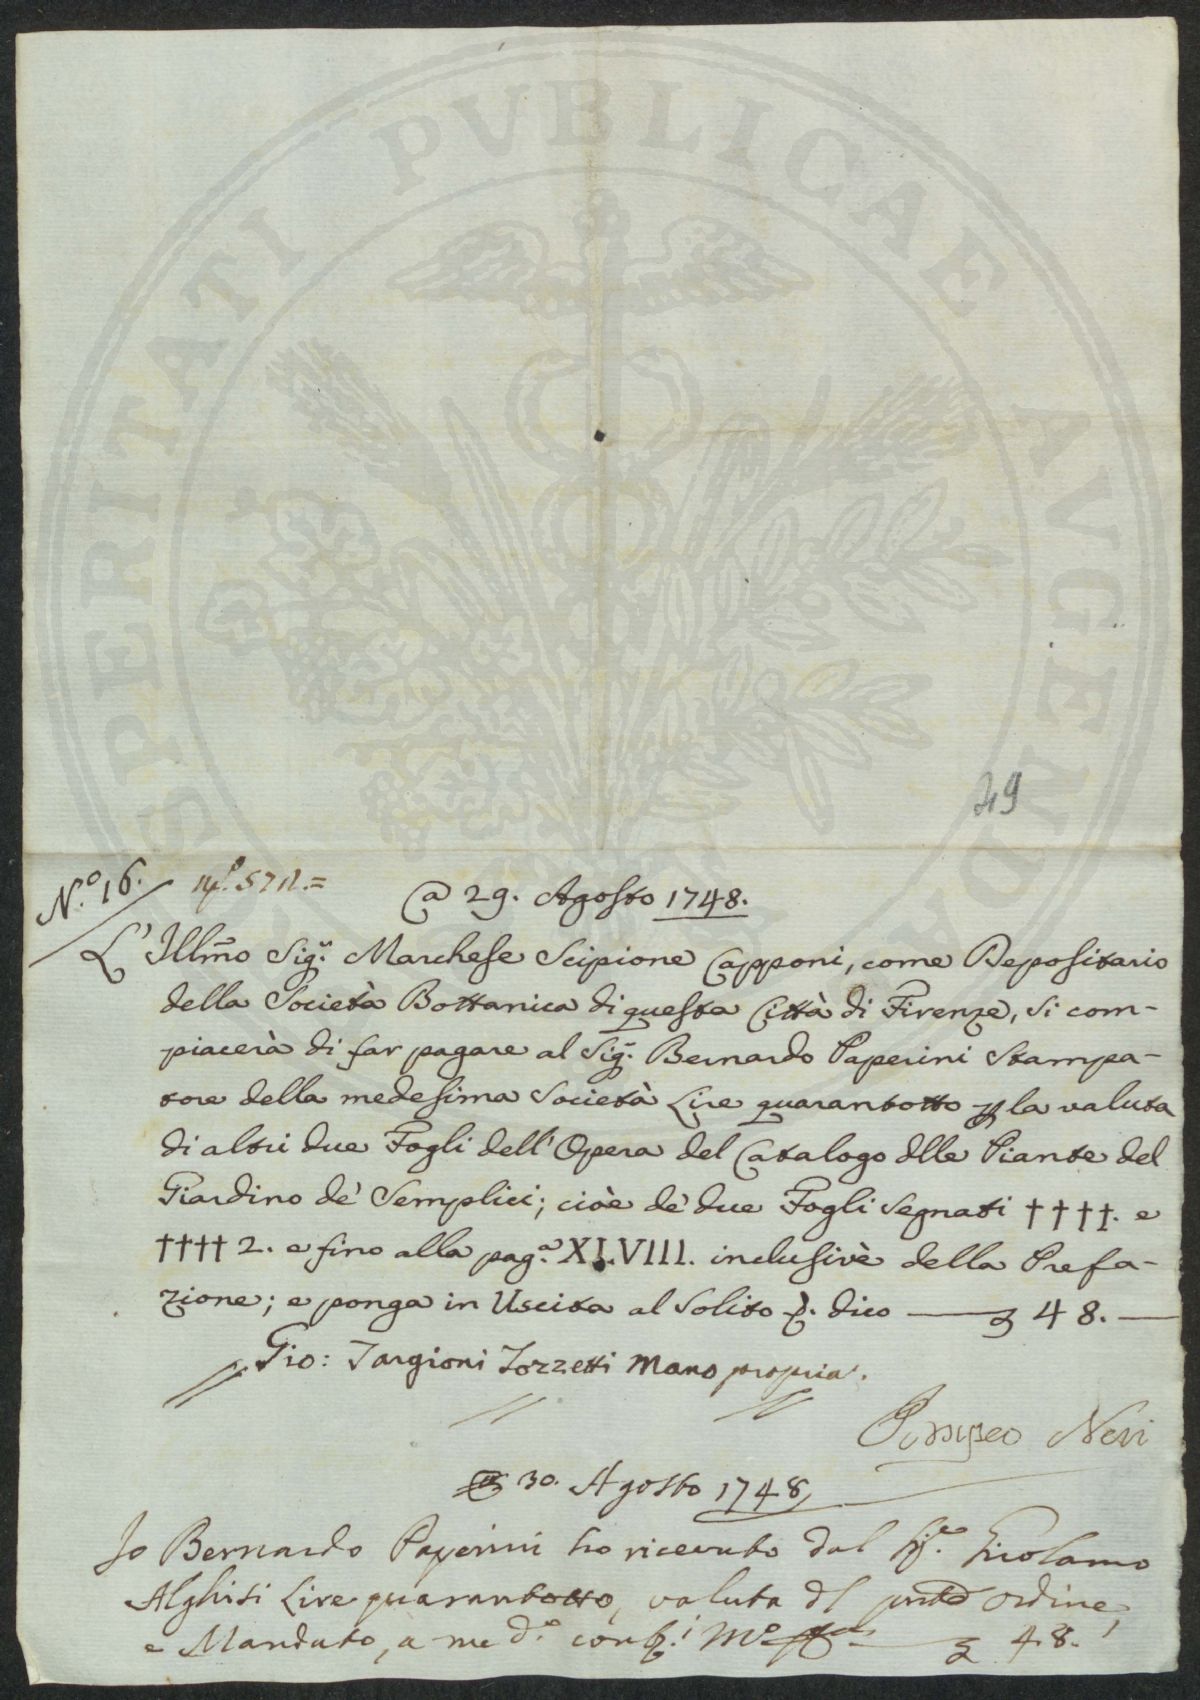 PROSPERITATI PVBLICAE AVGENDAE
49
N.º 16.
@ 29. Agosto 1748.
L'Illmo Sig.r Marchese Scipione Capponi, come Depositario
della Società Bottanica di questa Città di Firenze, si com-
piacerà di far pagare al Sig.r Bernardo Paperini Stampa-
tore della medesima Società Lire quarantotto la valuta
di altri due Fogli dell'Opera del Catalogo dlle Piante del
Giardino de' Semplici; cioè de' due Fogli segnati ††††. e
†††† 2. e fino alla pag.a XLVIII. inclusivè della Prefa-
zione; e ponga in Uscita al solito dico — 48. —
Gio: Targioni Tozzetti Mano propria.
Pompeo Neri
30. Agosto 1748
Io Bernardo Paperini ho ricevuto dal Sig.e Girolamo
Alghisi Lire quarantotto, valuta dl ordine,
e Mandato, a me d.o 48.